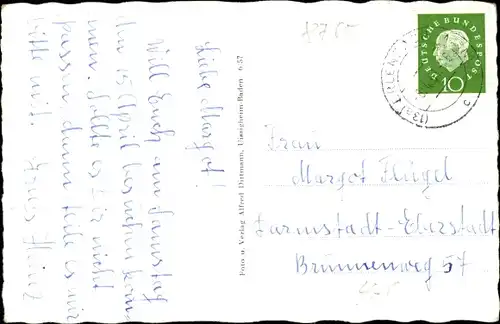 Liebe Margot!
Will Euch am Samstag
den 15 April besuchen kom-
men. Sollte es Dir nicht
passen, dann teile es mir
bitte mit. Heinz
Foto u. Verlag Alfred Dittmann, Unssigheim-Baden 6/57
DEUTSCHE BUNDESPOST
10
(13a) ERLEN
c
Frau
Margot Flügel
Darmstadt-Eberstadt
Brunnenweg 57